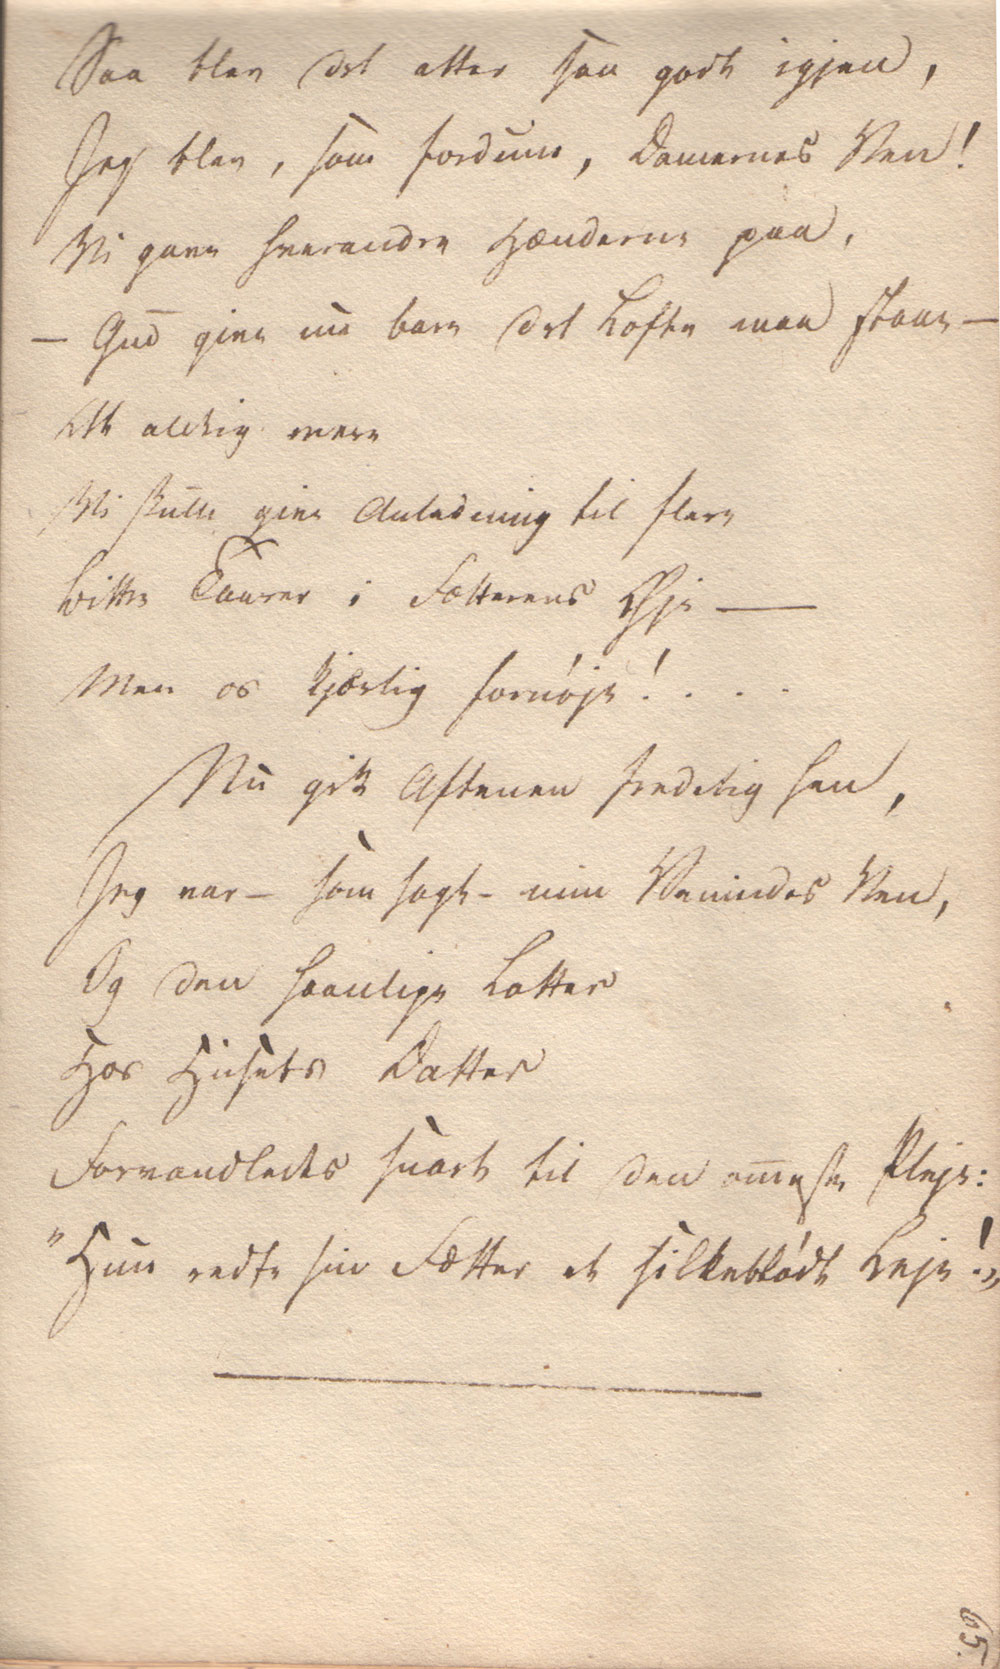 Saa blev det atter saa godt igjen,
Jeg blev, som fordum, Damernes Ven!
Vi gave hverandre Hænderne paa,
— Gud give nu bare det Løfte maa staae —
At aldrig mere
Vi skulle give Anledning til flere
bittre Taarer i Fætterens Øje —
Men os kjærlig fornøje! . . . .
Nu gik Aftenen fredelig hen,
Jeg var – som sagt – min Venindes Ven,
Og den haanlige Latter
Hos Husets Datter
Forvandledes snart til den ømmeste Pleje:
"Hun redte sin Fætter et silkeblødt Leje!"
65.